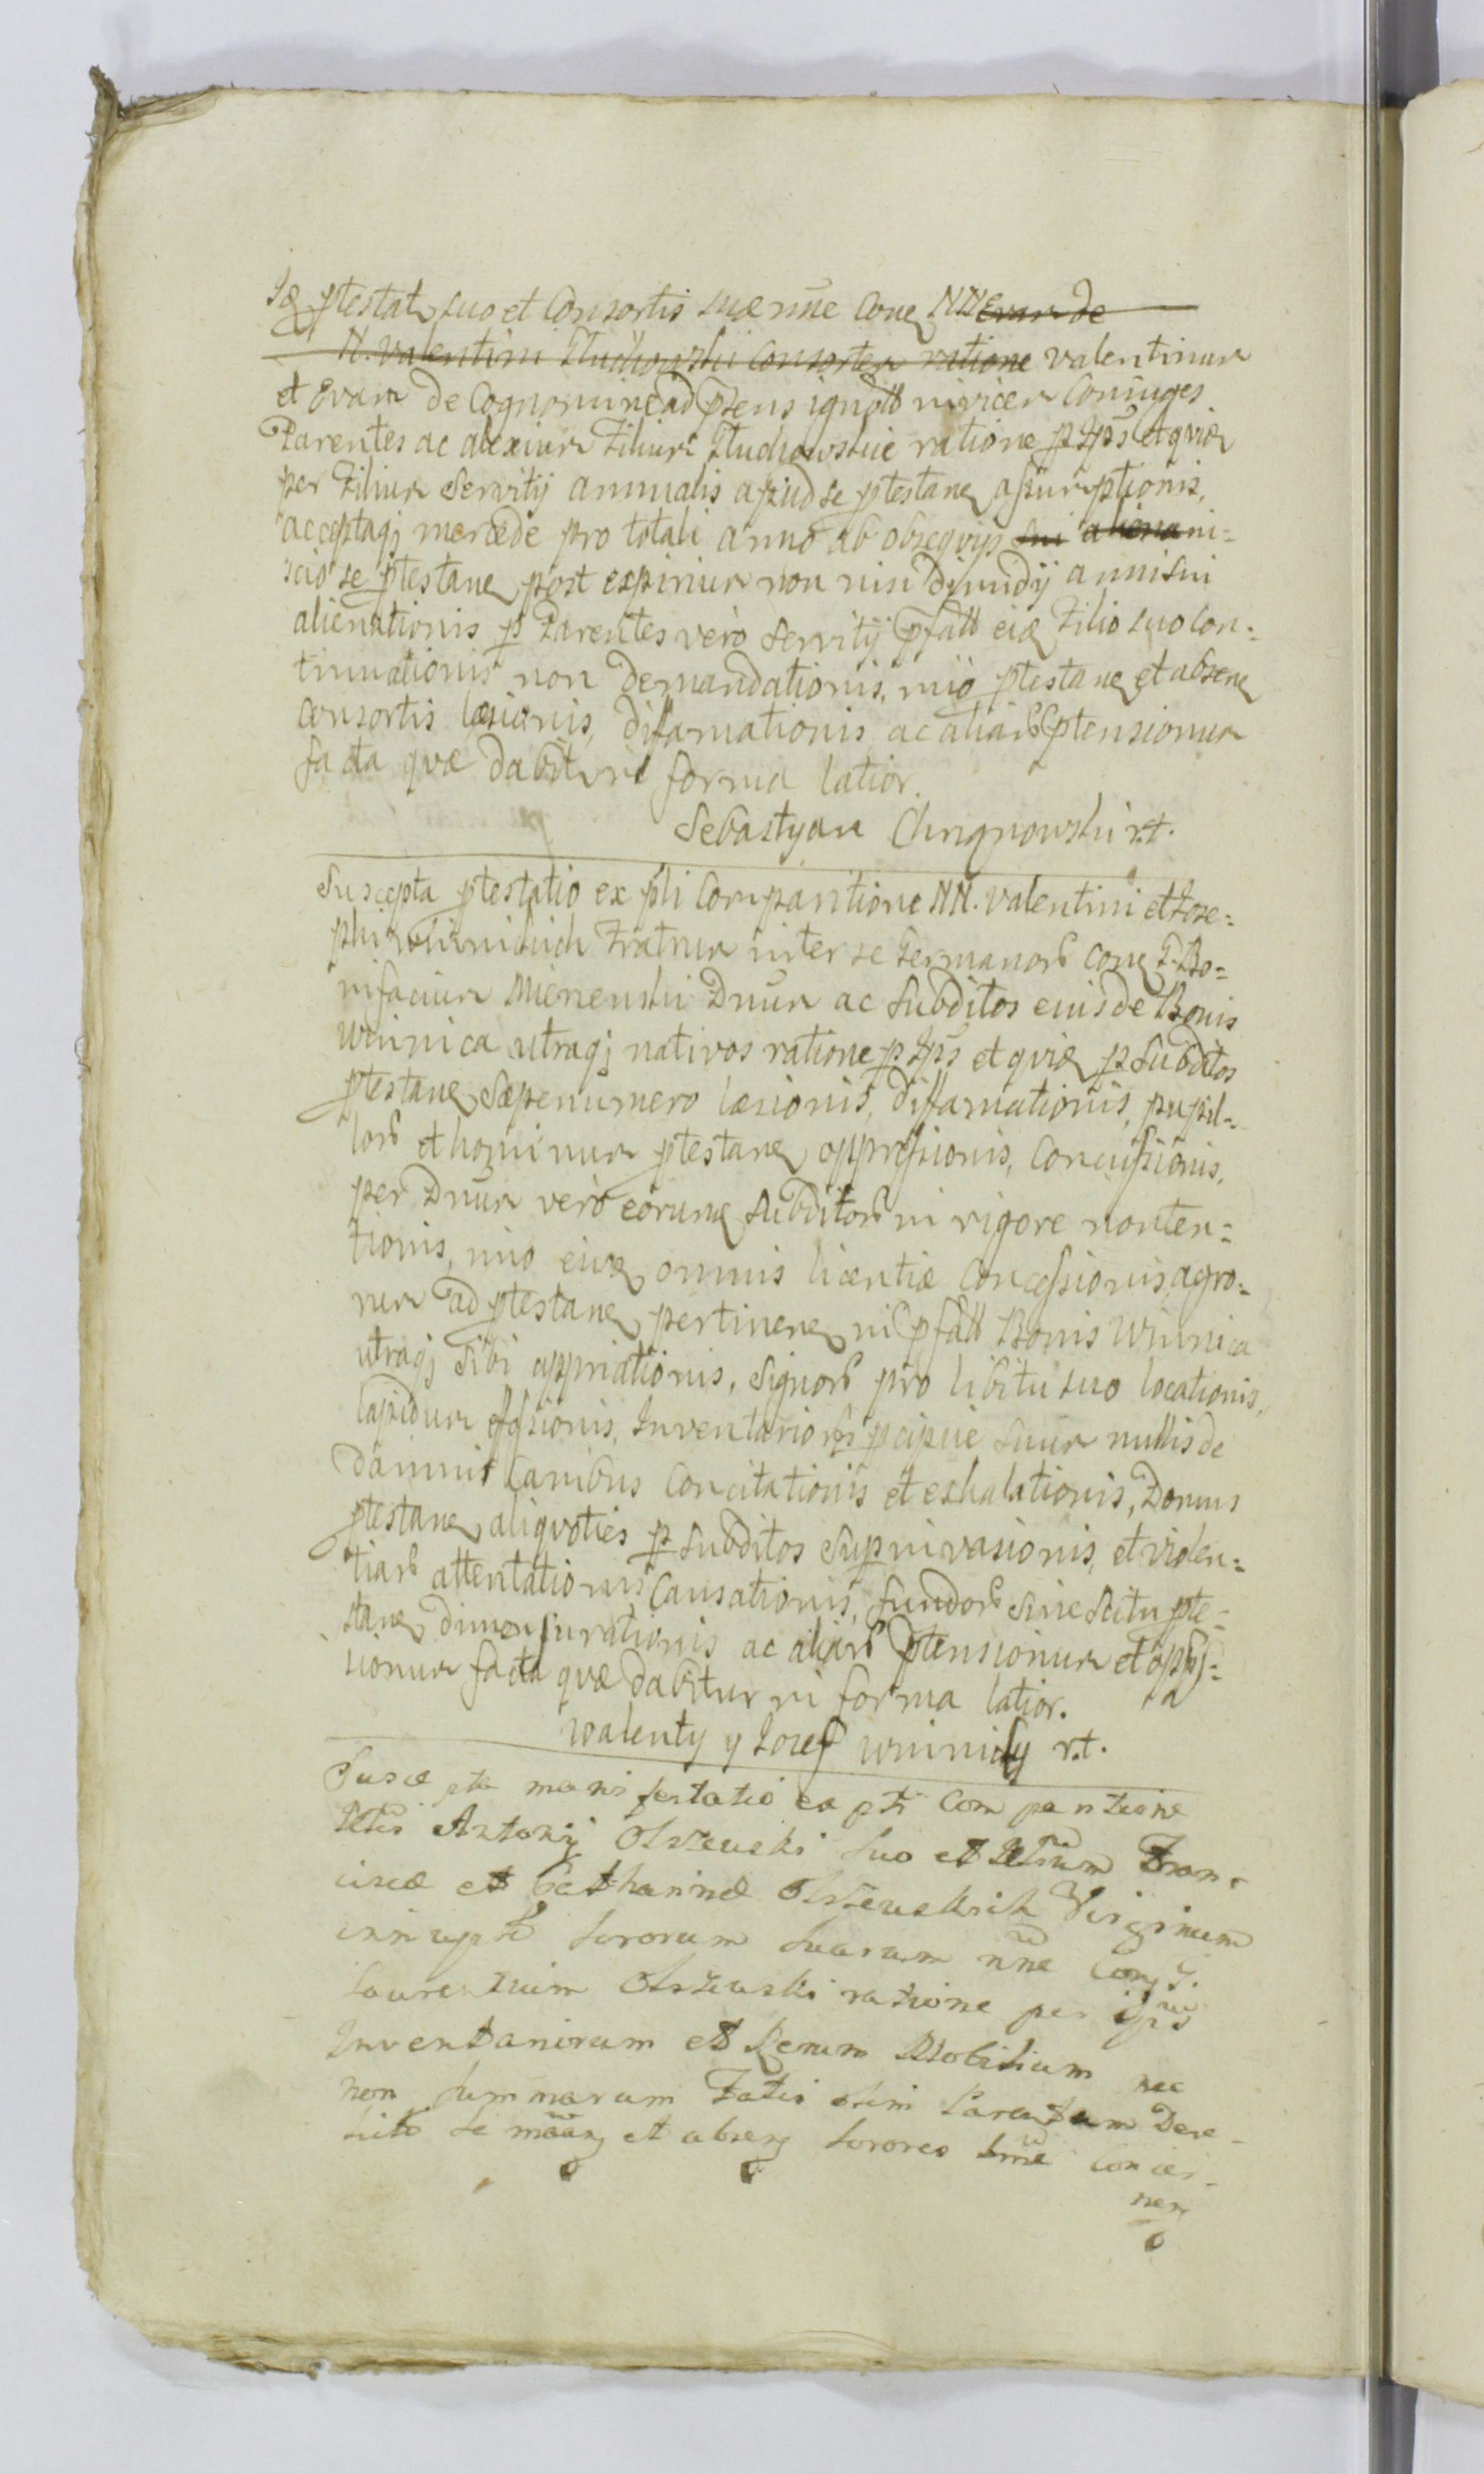 ptestat suo et Consortis suæ nne Con NN Evam de
N. Valentini Studniowski Consortem ratione Valentinum
et Evam de Cognomine ad psens ignott invicem Coniuges
Parentes ac Alexium Filium ratione p Ips et quia
per Filium Servitij annualis apud se ptestan assumptionis,
acceptaqj mercede pro totali anno ab obsequijs sui aliena ni-
scio se ptestan post expirium non nisi dimidij anni sui
alienationis p Parentes vero Servitij pfatt eiæ Filio suo con-
tinuationis non demandationis, imo ptestan et absen
Consortis læsionis, diffamationis ac aliarb ptensionum
facta quæ dabitur in forma latior.
Sebastyan r.t.
Suscepta ptestatio ex pli Comparitione NN. Valentini et Jose-
phi Winnickich Fratrum inter se Germanorb Con G. Bo-
nifacium Mienenski Dnum ac Subditos eius de Bonis
Winnica utraqj nativos ratione p Ips et quia p Subditos
ptestan Sæpenumero læsionis, diffamationis, pupil-
lorb et hominum ptestan oppressionis, Concussionis,
per Dnum vero eorum Subditorb in rigore nonten-
tionis, imo eius omnis licentiæ Concessionis, agro-
rum ad ptestan pertinen in pfatt Bonis Winnica
utraqj Sibi appriationis, Signorb pro libitu suo locationis,
lapidum effosionis, Inventariorb pcipue Suum nullis de
damnis Canibus Concitationis et exhalationis, Domus
ptestan aliquoties p Subditos Supinvasionis, et violen-
tiarb attentationis Causationis, fundorb Sine Scitu pte-
stan dimensurationis ac aliarb ptensionum et
sionum facta quæ dabitur in forma latior.
Walenty y Jozef Winnicky r.t.
Suscepta manifestatio ex pti Comparitione
Antonij Olszewski Suo et Fran-
ciscæ et Catharinæ Olszewskich Virginum
innupt Sororum Suarum nne Con G.
Laurentium Olszewski ratione per Ips
Inventariorum et Rerum Mobilium nec
non Summarum Fatis olim Parentum Dere-
lict Se et absen Sorores Concer-
nen